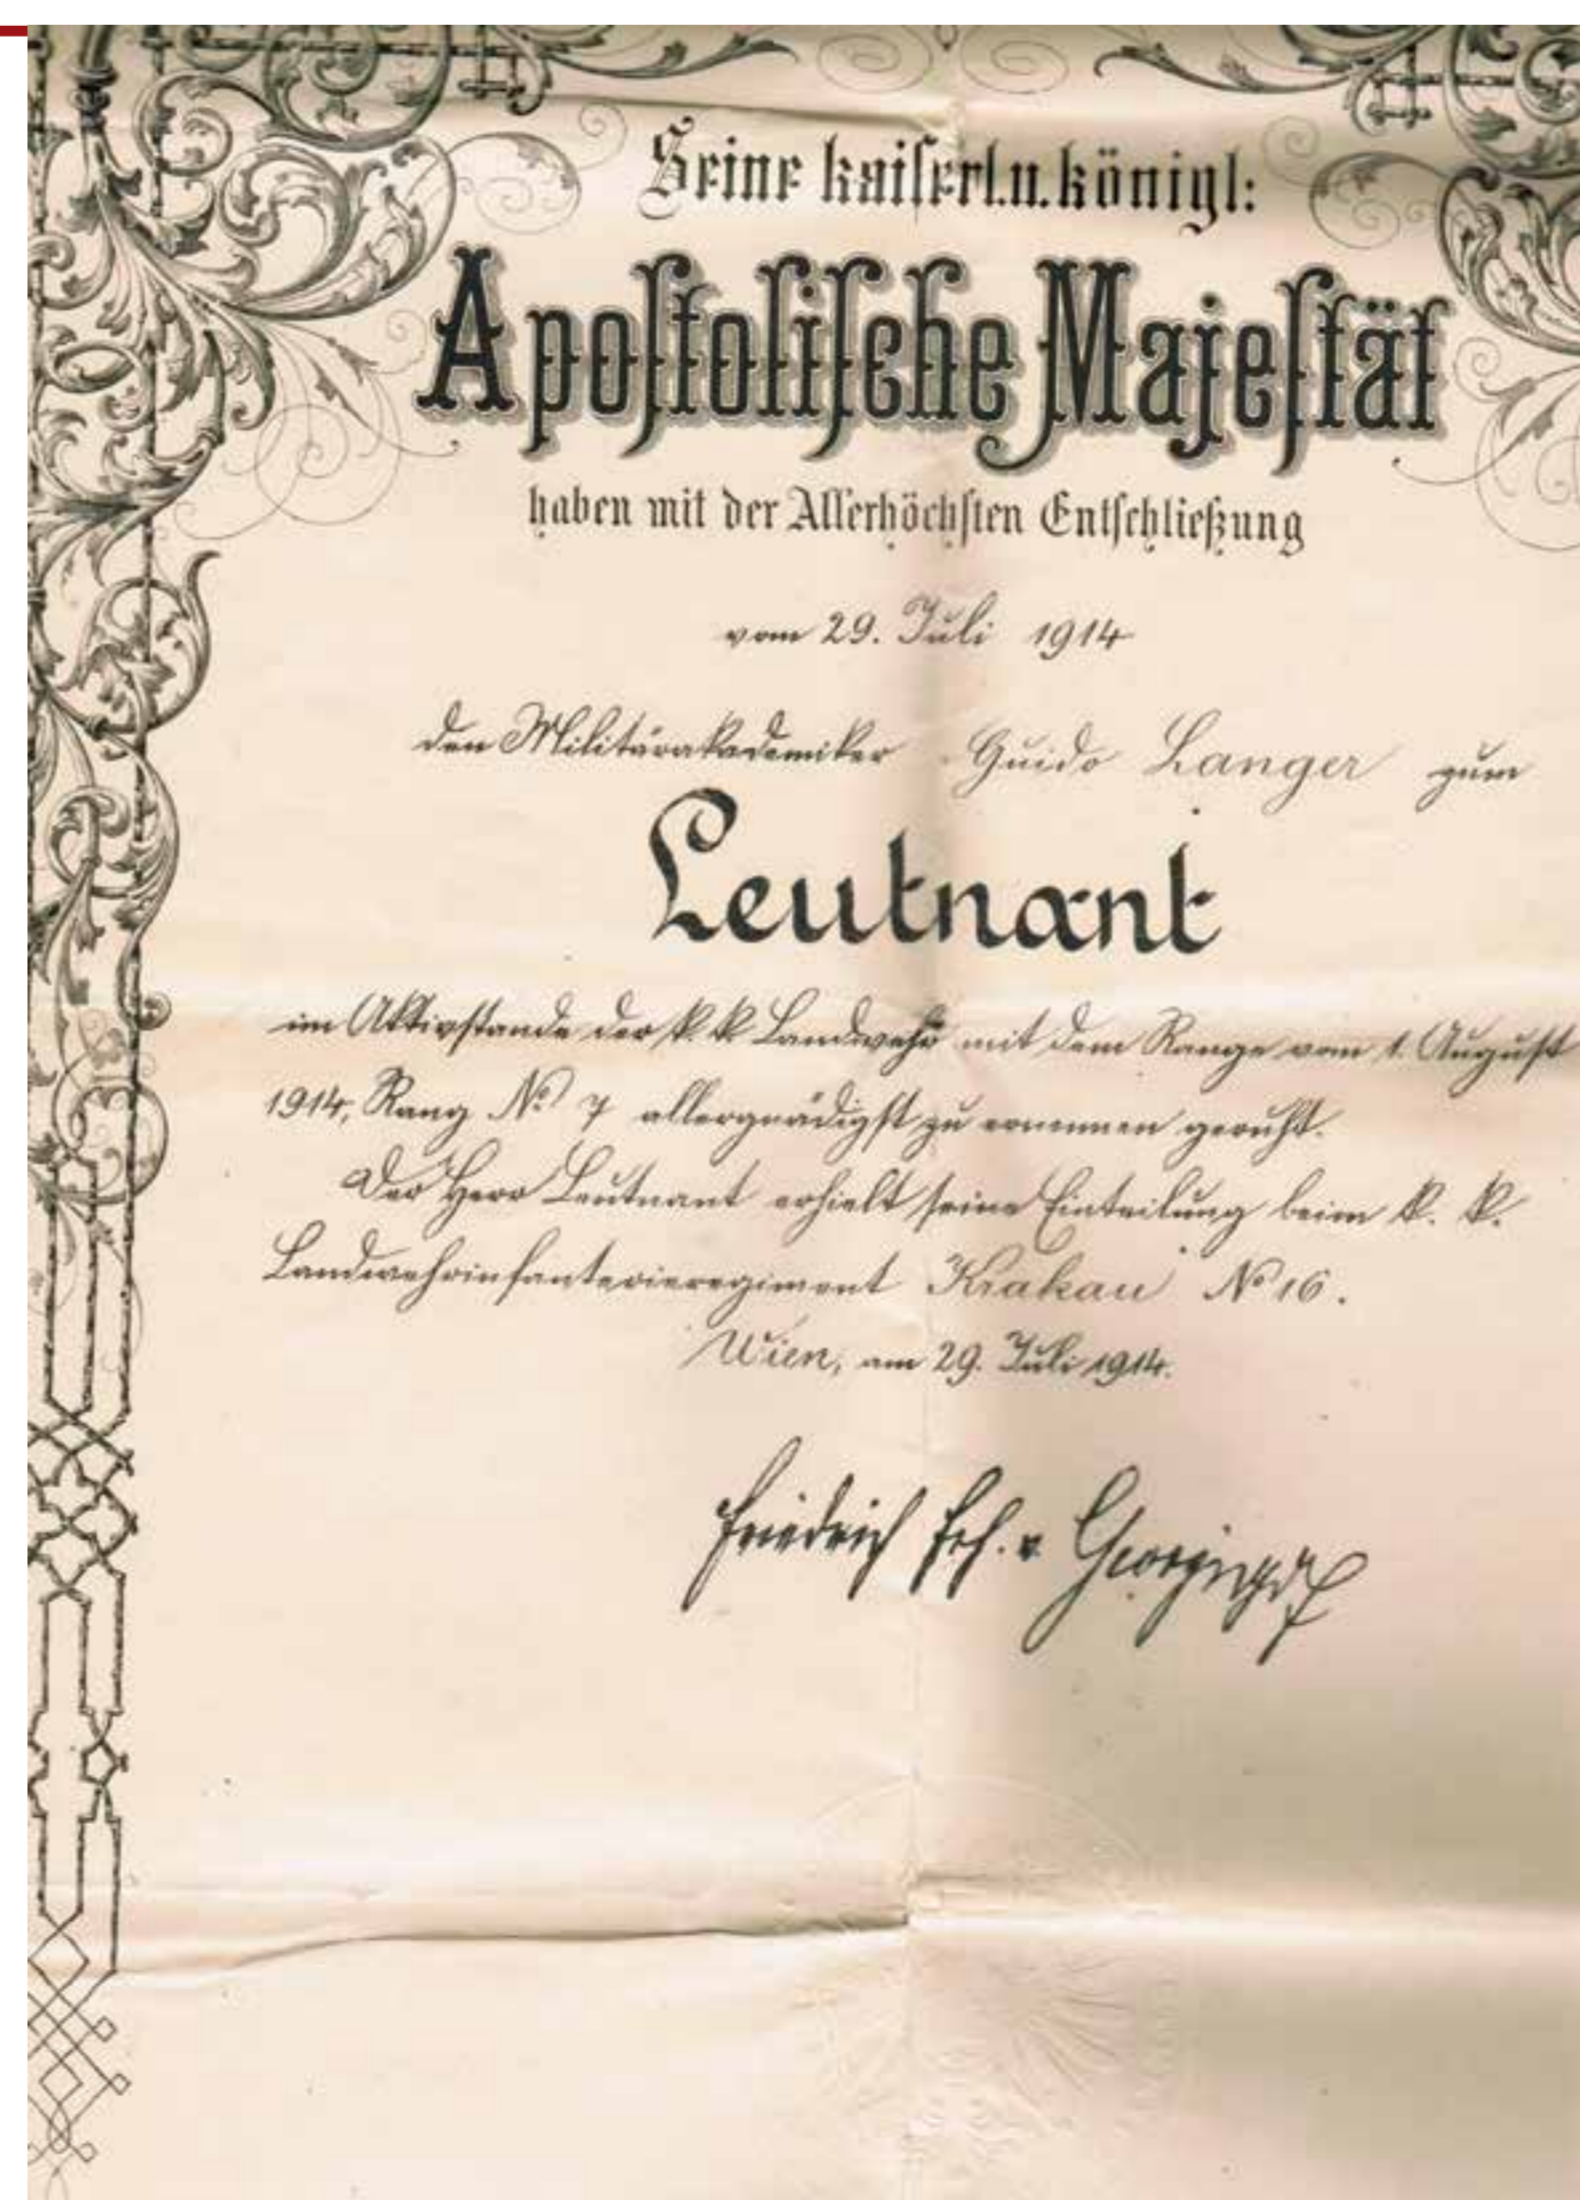 Seine kaiserl. u. königl:
Apostolische Majestät
haben mit der Allerhöchsten Entschließung
vom 29. Juli 1914
den Militärakademiker Guido Langer zum
Leutnant
im Aktivstande der k. k. Landwehr mit dem Range vom 1. August
1914, Rang No 7 allergnädigst zu ernennen geruht.
Der Herr Leutnant erhielt seine Einteilung beim k. k.
Landwehrinfanterieregiment Krakau No 16.
Wien, am 29. Juli 1914.
Friedrich Frh. v